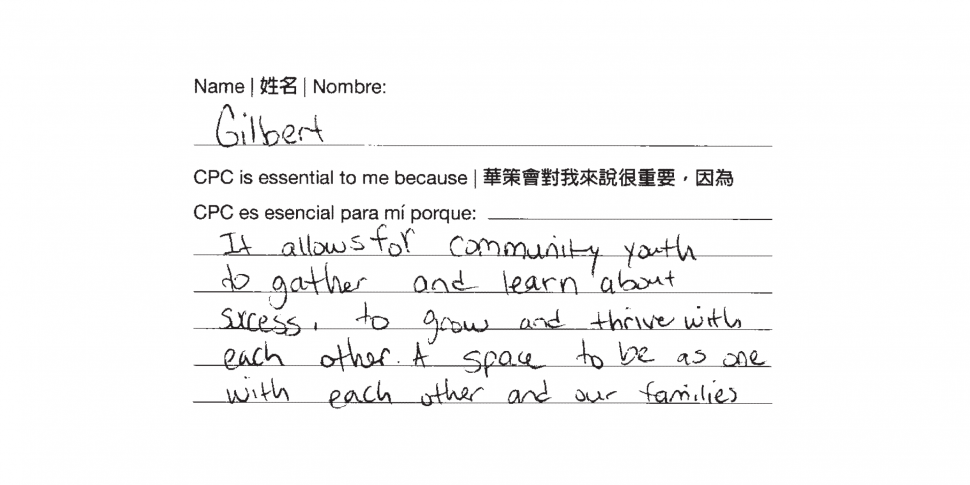 Name | 姓名 | Nombre:
Gilbert
CPC is essential to me because | 華策會對我來說很重要，因為
CPC es esencial para mí porque:
It allows for community youth
to gather and learn about
sxcess, to grow and thrive with
each other. A space to be as one
with each other and our families